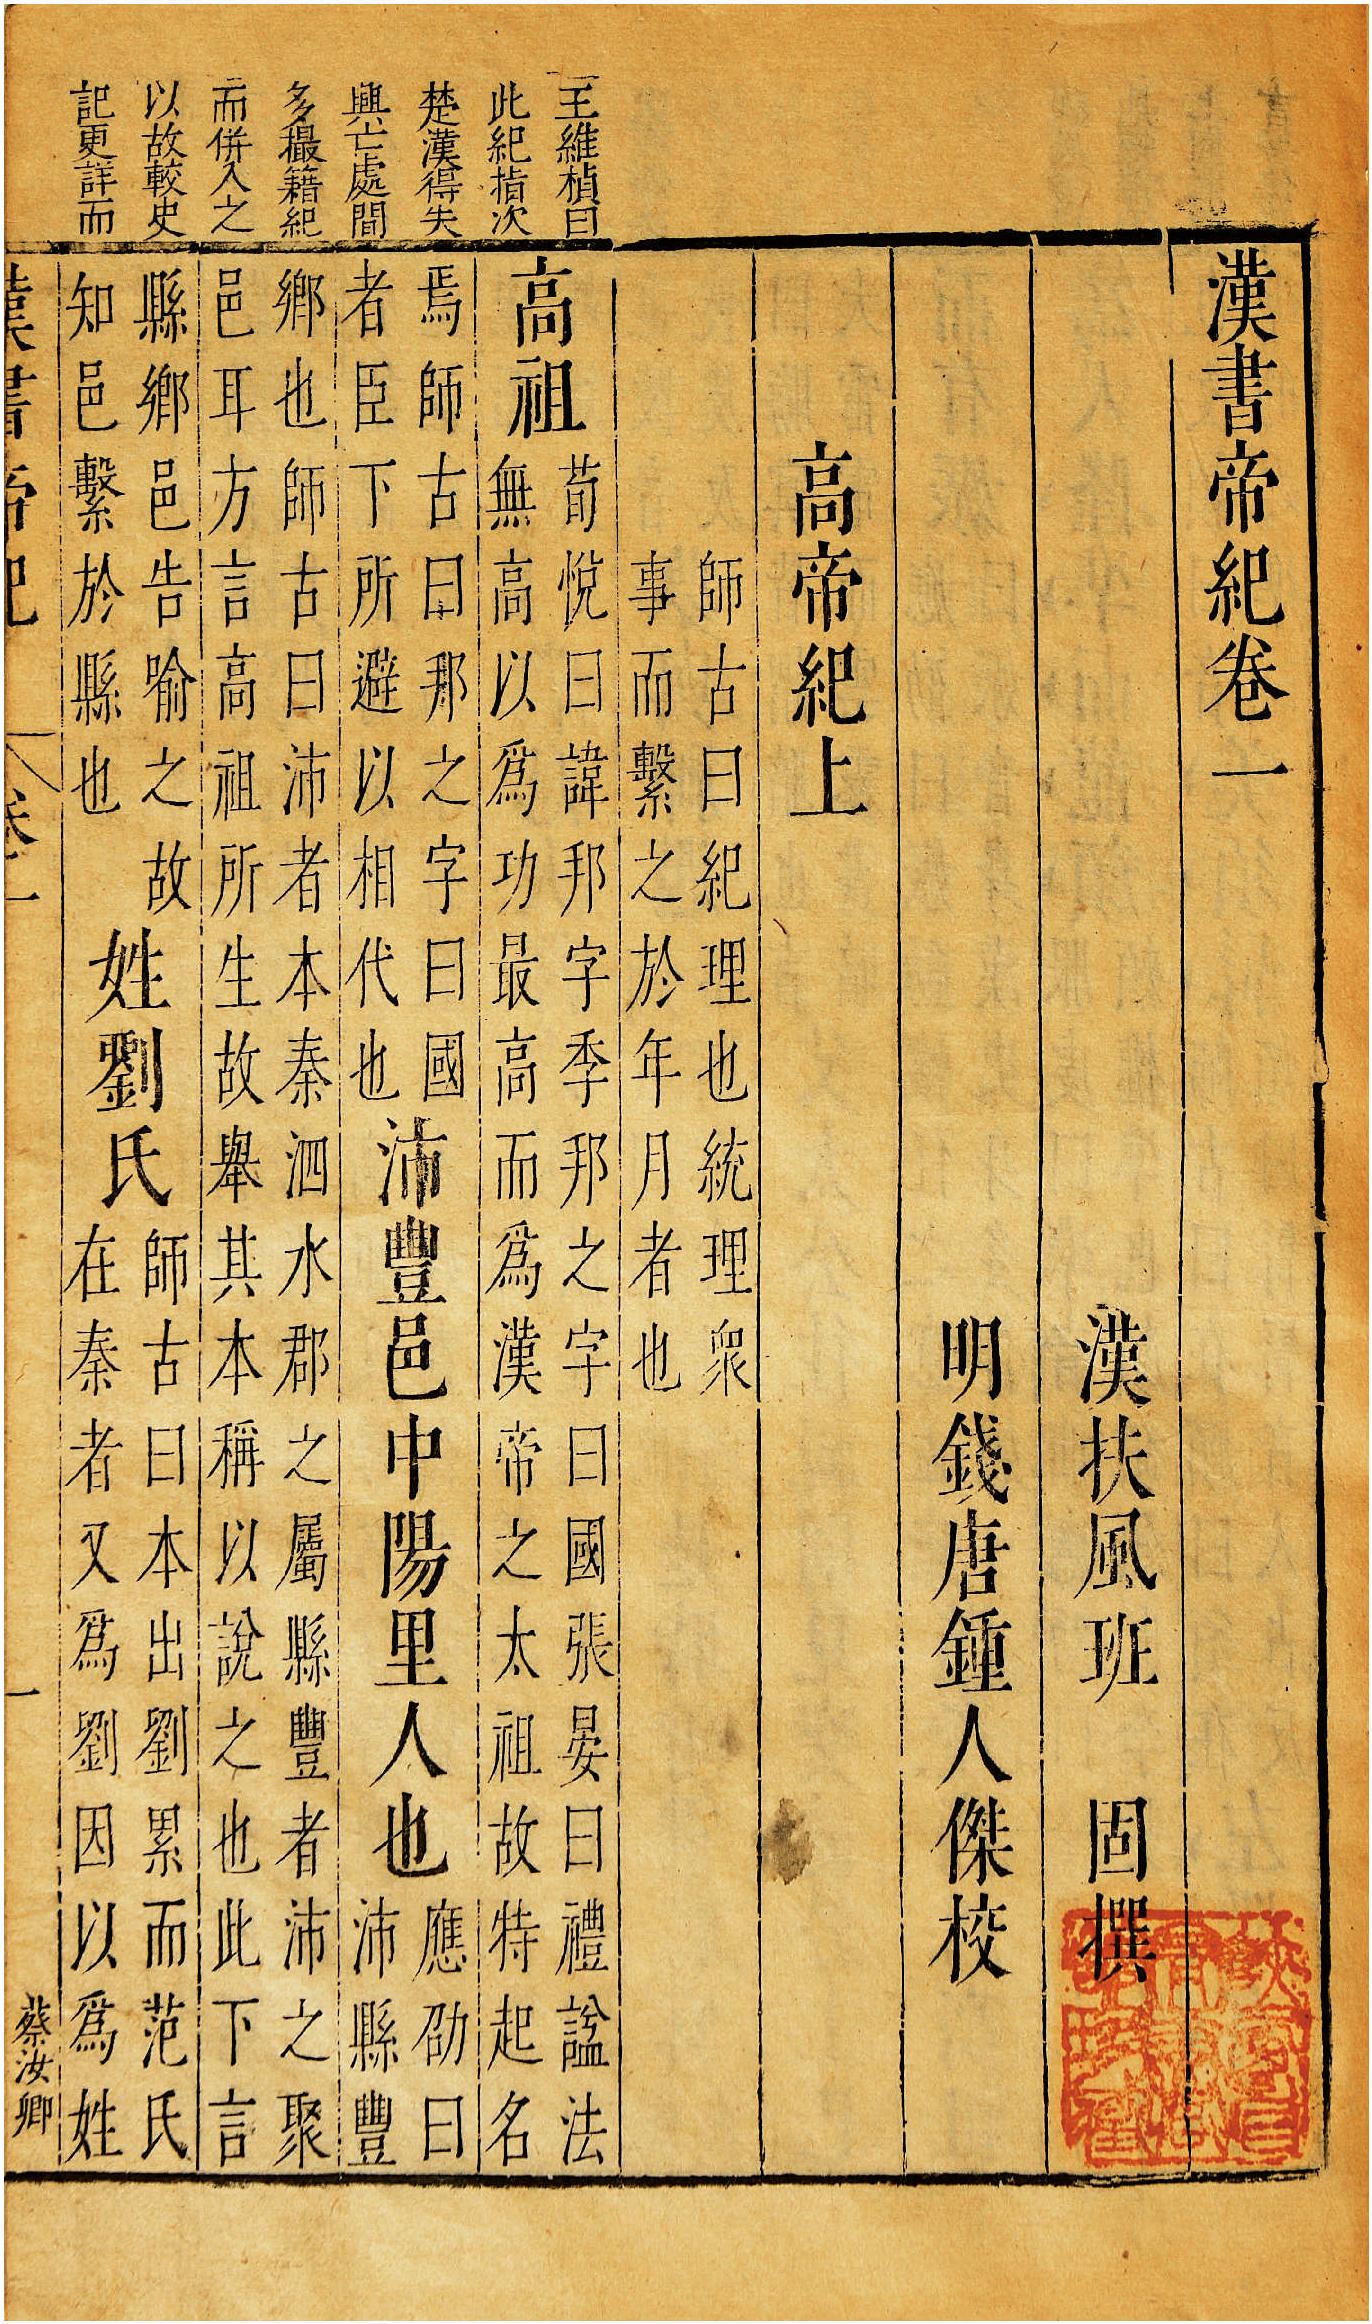 漢書帝紀卷一
漢扶風班　固撰
明錢唐鍾人傑校
高帝紀上
師古曰紀理也統理衆
事而繫之於年月者也
王維楨曰
此紀指次
楚漢得失
興亡處間
多撮籍紀
而併入之
以故較史
記更詳而
高祖
荀悅曰諱邦字季邦之字曰國張晏曰禮諡法
無高以爲功最高而爲漢帝之太祖故特起名
焉師古曰邦之字曰國
者臣下所避以相代也
沛豐邑中陽里人也
應劭曰
沛縣豐
鄉也師古曰沛者本秦泗水郡之屬縣豐者沛之聚
邑耳方言高祖所生故舉其本稱以說之也此下言
縣鄉邑告喻之故
知邑繫於縣也
姓劉氏
師古曰本出劉累而范氏
在秦者又爲劉因以爲姓
漢書帝紀
卷一
一
蔡汝卿